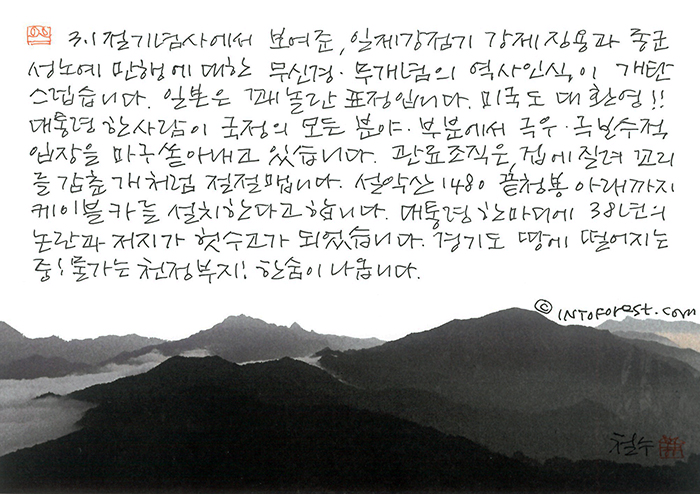 3.1절기념사에서 보여준, 일제강점기 강제징용과 종군
성노예 만행에 대한 무신경·무개념의 역사인식이 개탄
스럽습니다. 일본은 깨놀란 표정입니다. 미국도 대환영!!
대통령 한사람이 국정의 모든 분야·부분에서 극우·극보수적
입장을 마구 쏟아내고 있습니다. 관료조직은, 겁에 질려 꼬리
를 감춘 개처럼 절절맵니다. 설악산 1480 끝청봉 아래까지
케이블카를 설치한다고 합니다. 대통령 한마디에 38년의
논란과 저지가 헛수고가 되었습니다. 경기도 땅에 떨어지는
중! 물가는 천정부지! 한숨이 나옵니다.
© INTOforest.com
철수